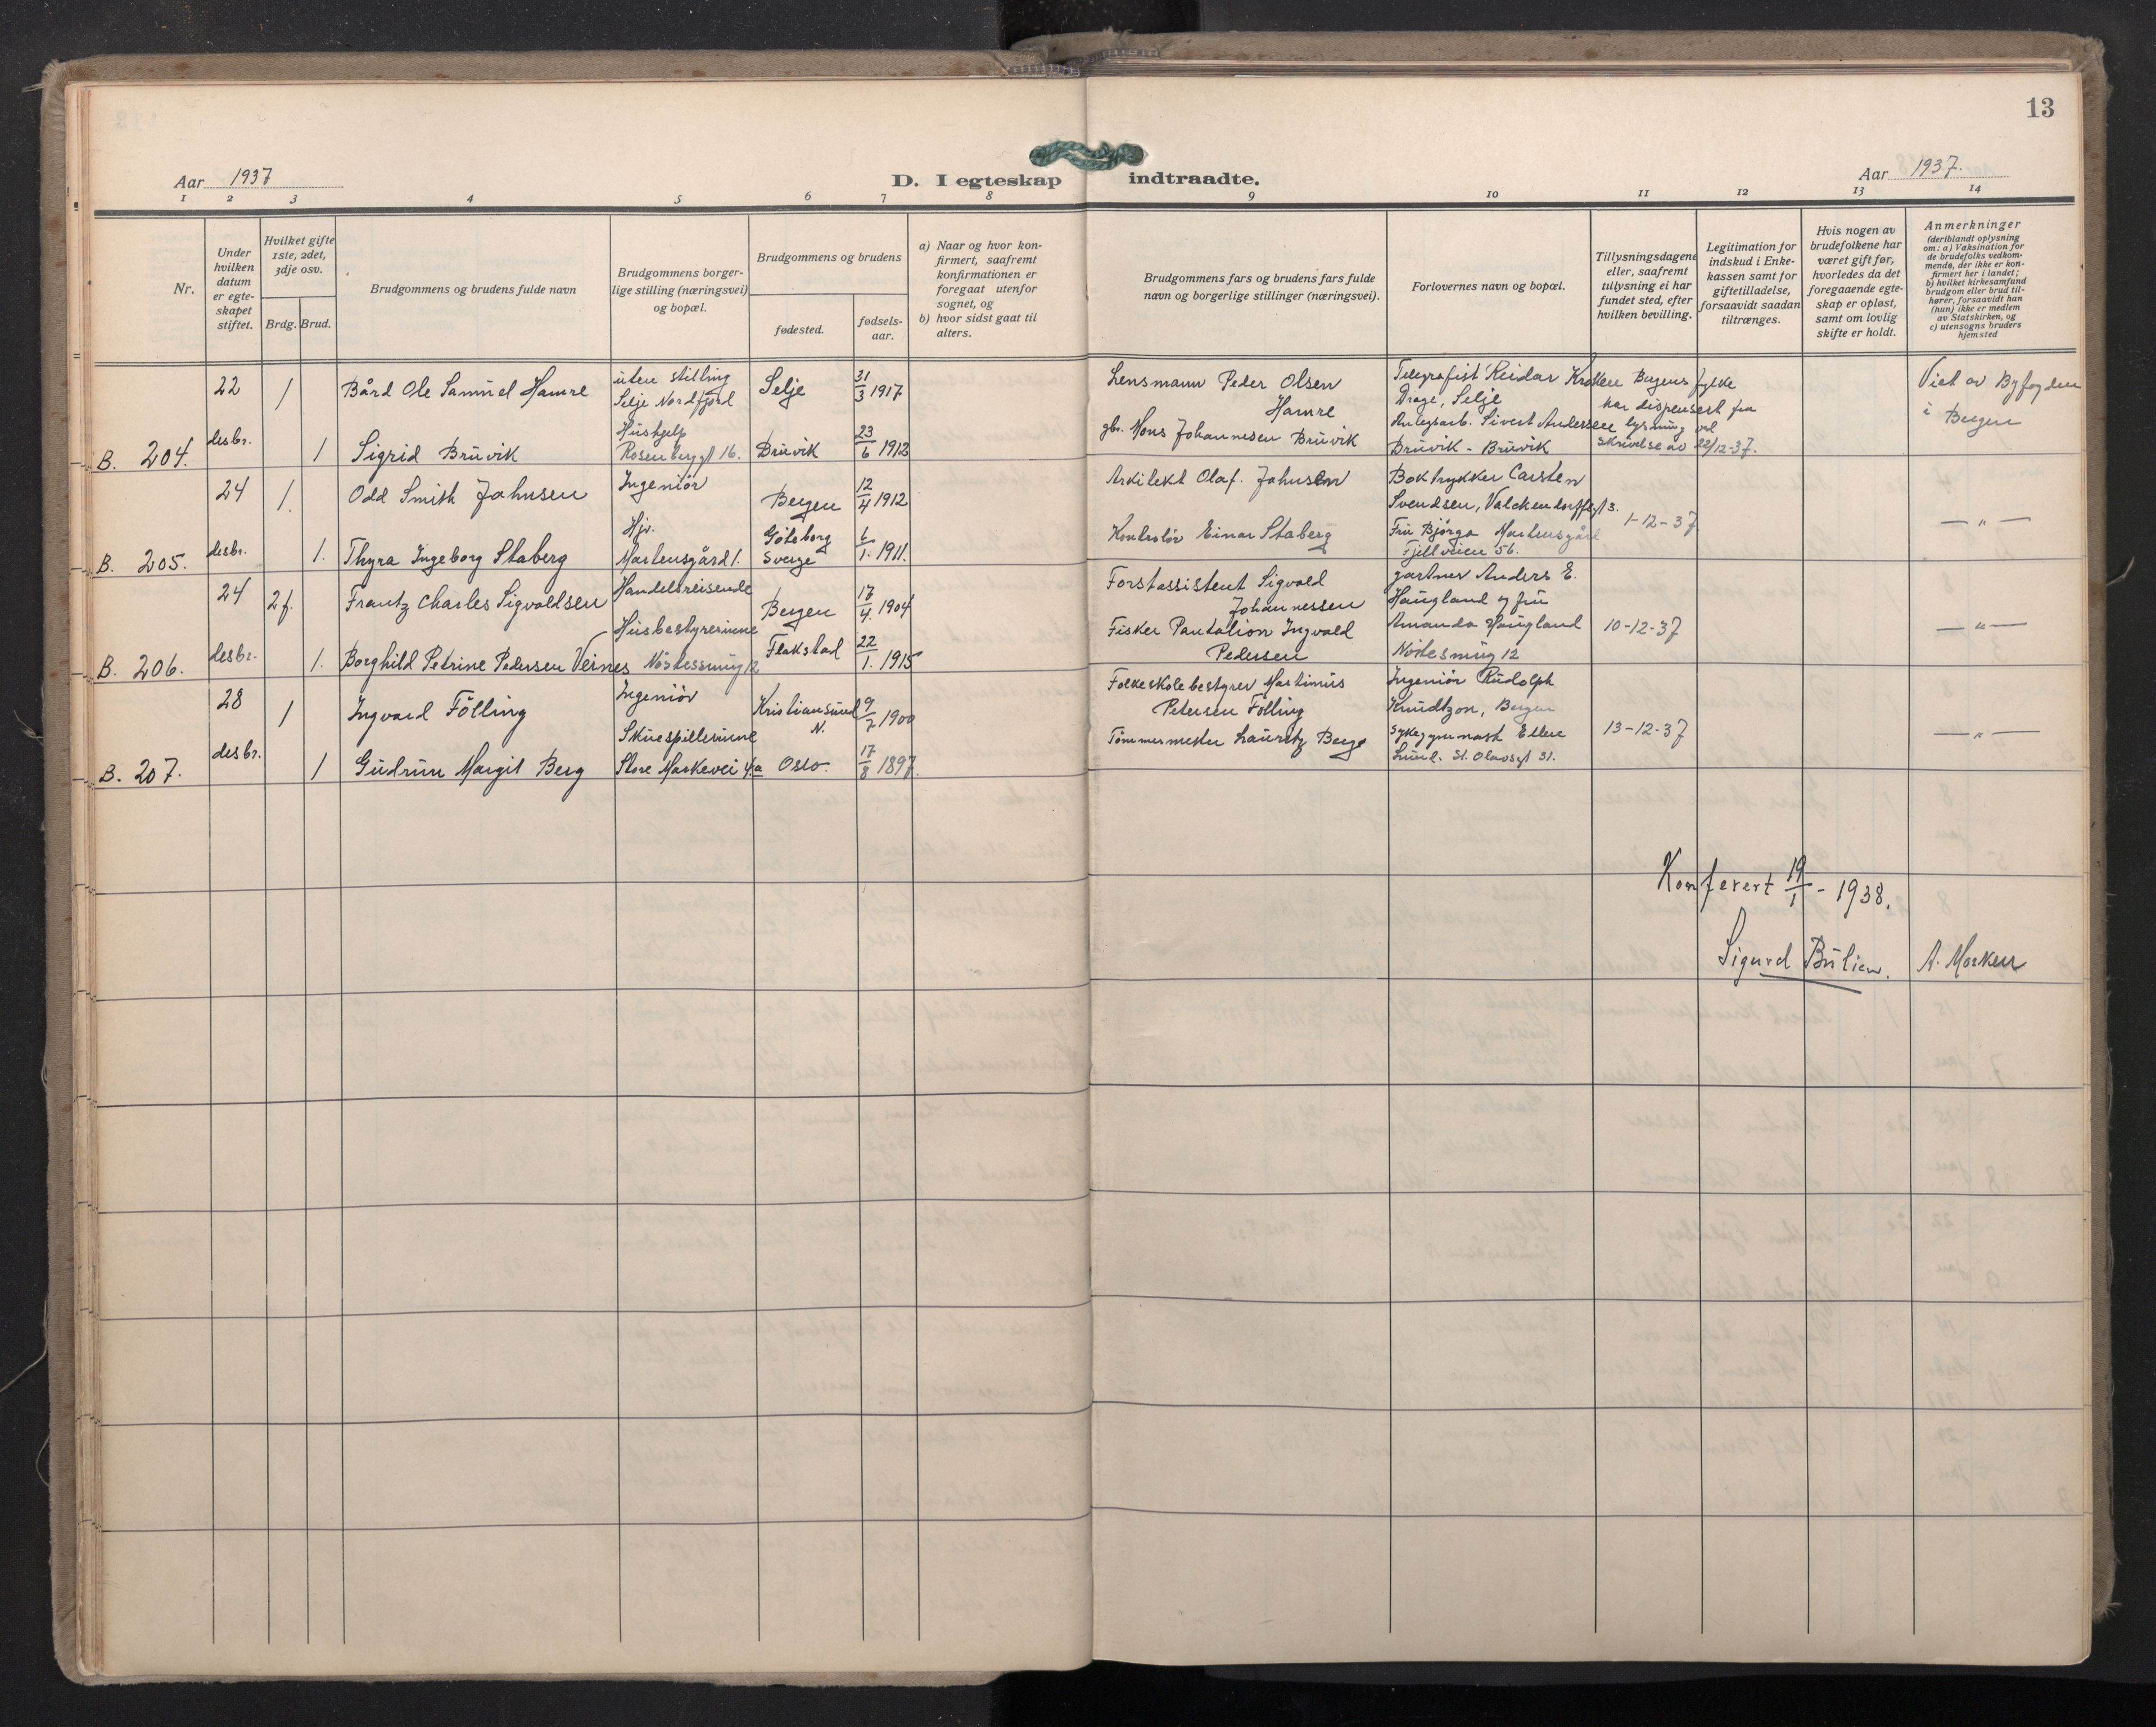 13
Aar 1937
D. I egteskap indtraadte.
Aar 1937.
1 2 3 4 5 6 7 8 9 10 11 12 13 14
Nr.
Under hvilken datum er egteskapet stiftet.
Hvilket gifte 1ste, 2det, 3dje osv.
Brdg. Brud.
Brudgommens og brudens fulde navn
Brudgommens borger-
lige stilling (næringsvei)
og bopæl.
Brudgommens og brudens
fødested.
fødsels-
aar.
a) Naar og hvor kon-
firmert, saafremt
konfirmationen er
foregaat utenfor
sognet, og
b) hvor sidst gaat til
alters.
Brudgommens fars og brudens fars fulde
navn og borgerlige stillinger (næringsvei).
Forlovernes navn og bopæl.
Tillysningsdagene
eller, saafremt
tillysning ei har
fundet sted, efter
hvilken bevilling.
Legitimation for
indskud i Enke-
kassen samt for
giftetilladelse,
forsaavidt saadan
tiltrænges.
Hvis nogen av
brudefolkene har
været gift før,
hvorledes da det
foregaaende egte-
skap er opløst,
samt om lovlig
skifte er holdt.
Anmerkninger
(deriblandt oplysning
om: a) Vaksination for
de brudefolks vedkom-
mende, der ikke er kon-
firmert her i landet;
b) hvilket kirkesamfund
brudgom eller brud til-
hører, forsaavidt han
(hun) ikke er medlem
av Statskirken, og
c) utensogns bruders
hjemsted
B. 204.
22 desbr.
1
Bård Ole Samuel Hamre
uten stilling
Selje Nordfjord
Selje
31/3 1917
1
Sigrid Bruvik
Hushjelp
Rosenbergst 16.
Bruvik
23/6 1912
Lensmann Peder Olsen
Hamre
gbr. Mons Johannesen Bruvik
Telegrafist Reidar Kroken
Drage, Selje
Anlegsarb. Sivert Andersen
Bruvik - Bruvik
Bergens fylke
har dispensert fra
lysning ved
skrivelse av 22/12-37.
Viet av Byfogden
i Bergen
B. 205.
24 desbr.
1.
Odd Smith Jahnsen
Ingeniør
Bergen
12/4 1912
1.
Thyra Ingeborg Staberg
Hjv.
Martensgård 1.
Göteborg
Sverge
6/1. 1911.
Arkitekt Olaf. Jahnsen
Kontrolör Einar Staberg
Boktrykker Carsten
Svendsen, Valckendorffsgt 3.
Fru Bjørga Martensgård
Fjellveien 56.
1-12-37
— " —
B. 206.
24 desbr.
2 f.
Frantz Charles Sigvaldsen
Handelsreisende
Bergen
17/4. 1904
1.
Borghild Petrine Pedersen Veines
Husbestyrerinne
Nöstessmug 12
Flakstad
22/1. 1915
Forstassistent Sigvald
Johannessen
Fisker Pantalion Ingvald
Pedersen
gartner Anders E.
Haugland og fru
Amanda Haugland
Nöstesmug 12
10-12-37
— " —
B. 207.
28 desbr.
1
Ingvard Fölling
Ingeniör
Kristiansund
N.
9/7 1900
1
Gudrun Margit Berg
Skuespillerinne
Store Markevei 4a
Oslo.
17/8 1897.
Folkeskolebestyrer Martinus
Petersen Fölling
Tömmermester Lauritz Berge
Ingeniör Rudolph
Knudtzon, Bergen
Sykegymnast Ellen
Lund. St. Olavsgt 31.
13-12-37
— " —
Konferert 19/1 - 1938.
Sigurd Bulien. A. Morken